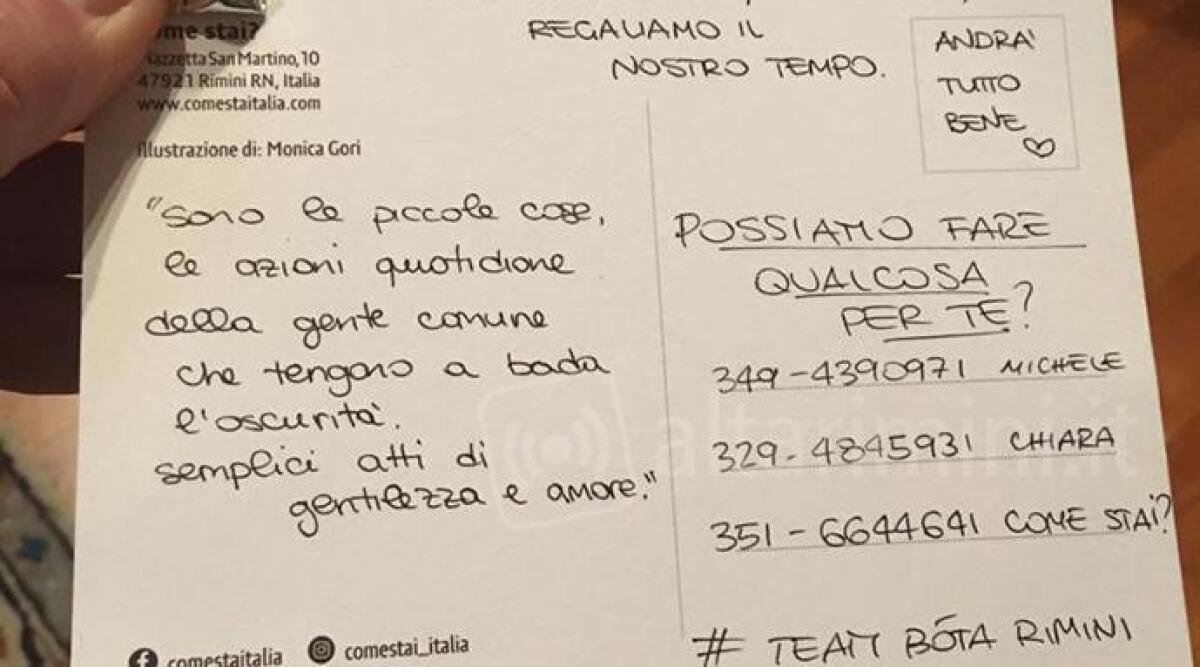 Come stai?
Piazzetta San Martino, 10
47921 Rimini RN, Italia
www.comestaitalia.com
Illustrazione di: Monica Gori
REGALIAMO IL
NOSTRO TEMPO.
ANDRA'
TUTTO
BENE
"sono le piccole cose,
le azioni quotidiane
della gente comune
che tengono a bada
l'oscurità.
semplici atti di
gentilezza e amore."
POSSIAMO FARE
QUALCOSA
PER TE?
349-4390971 MICHELE
329-4845931 CHIARA
351-6644641 COME STAI?
# TEAM BÓTA RIMINI
comestaitalia
comestai_italia
altarimini.it